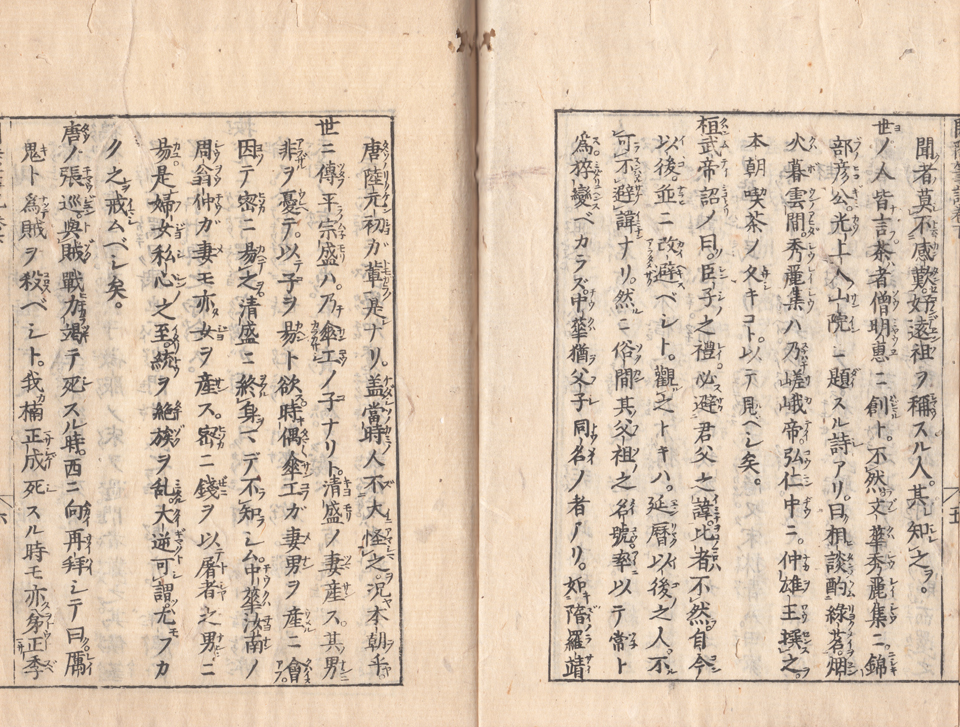 聞者莫不感歎。好遠祖ヲ稱スル人。其知之ヲ。
世ノ人皆言茶者僧明惠ニ創ト。不然文華秀麗集ニ。錦
部彦公。光上人山院ニ題スル詩アリ。曰相談酌綠茗。烟
火暮雲間。秀麗集ハ乃嵯峨帝。弘仁中ニ。仲雄王撰之。
本朝喫茶ノ久キコト。以テ見ベシ矣。
桓武帝詔ノ曰。臣子之禮。必避君父之諱。比者不然。自今
以後。並ニ改避ベシト。觀之トキハ。延曆以後之人。不
可不避諱ナリ。然ニ俗間其父祖之名號。率以テ常ト
爲。猝變ベカラズ。中華猶父子同名ノ者アリ。如隋羅靖
唐陸元初ガ輩是ナリ。盖當時人不大怪之。况本朝乎
世ニ傳平宗盛ハ乃傘工ノ子ナリト。清盛ノ妻産ス。其男
非ヲ憂テ。以子ヲ易ト欲時。偶傘工ガ妻男ヲ産ニ會
因テ密ニ易之清盛ニ終身マデ不知シム。中華汝南ノ
周翁仲ガ妻モ亦女ヲ産ス。密ニ錢ヲ以屠者之男ニ
易。是婦女私心之至。統ヲ絶族ヲ乱。大逆可謂尤モフカ
ク之戒ムベシ矣。
唐ノ張巡。與賊戰力竭テ死スル時。西ニ向再拜シテ曰。厲
鬼ト爲賊ヲ殺ベシト。我楠正成死スル時モ亦弟正季